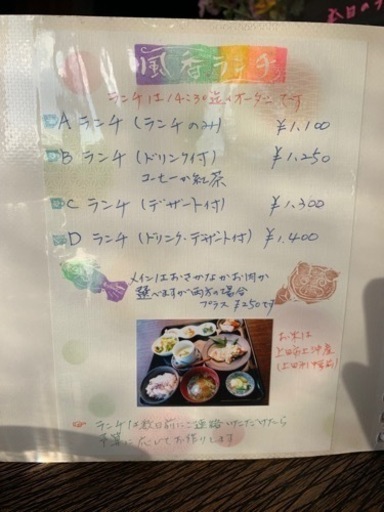 風香ランチ
ランチは14:30迄オーダーです
A ランチ (ランチのみ) ¥1,100
B ランチ (ドリンク付) ¥1,250
コーヒーか紅茶
C ランチ (デザート付) ¥1,300
D ランチ (ドリンク・デザート付) ¥1,400
メインはおさかなかお肉か
選べますが両方の場合
プラス¥250です
お米は
上田市
ランチは数日前にご連絡いただけたら
予算に応じてお作りします